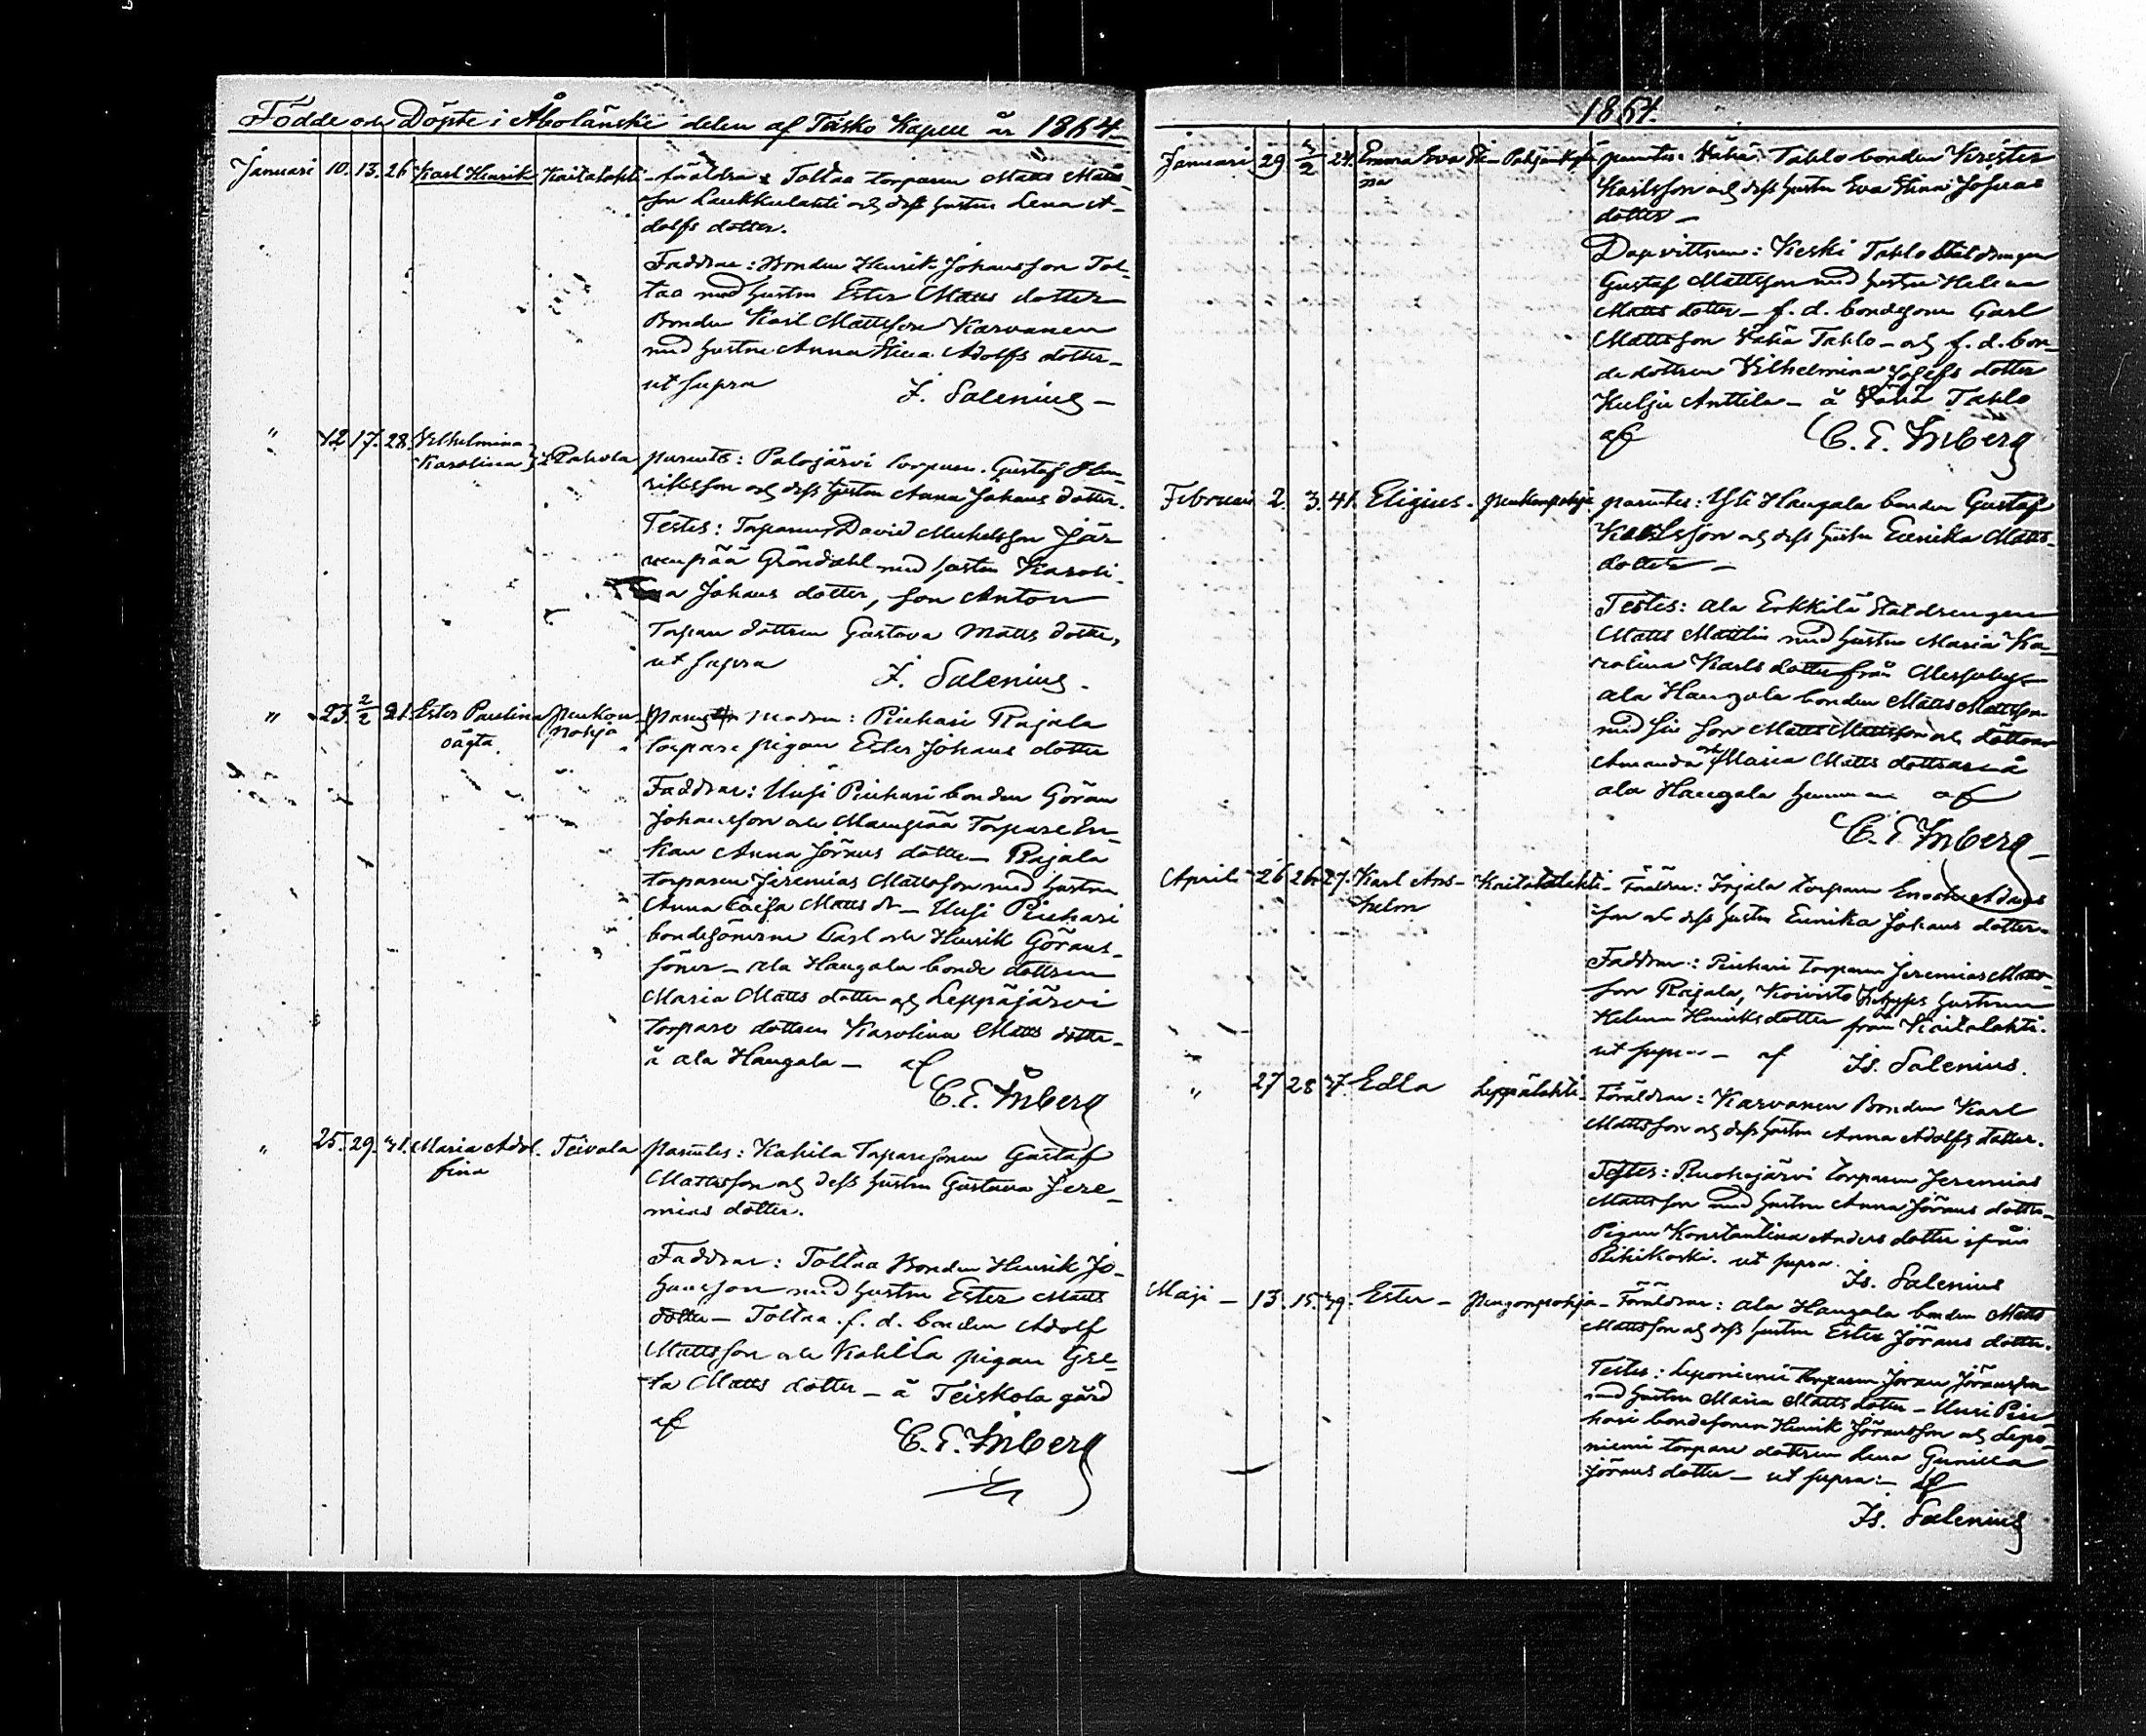 Födde och Döpte i Åbolänske delen af Teisko Kapell år 1864
Januari 10. 13. 26 Karl Henrik Kaitalahti föräldrar Toltaa torparen Matts Matts
son Laukkulahti och dess hustru Lena A-
dolfs dotter.
Faddrar: Bonden Henrik Johansson Tol-
taa med hustru Ester Matts dotter
Bonden Karl Mattsson Karvanen
med hustru Anna Stina Adolfs dotter
ut supra J. Salenius
" 12 17. 28. Vilhelmina Karolina Pahola parents: Palojärvi torparen Gustaf Hen-
riksson och dess hustru Anna Johans dotter.
Testes: Torparen David Michelsson Jär
venpää Gröndahl med hustru Karoli-
na Johans dotter, son Anton
Torpare dottren Gustava Matts dotter,
ut supra J. Salenius.
" 23. 2/2 21. Ester Paulina Penkon modren: Piuhari Rajala
oägta pohja torpare pigan Ester Johans dotter
Faddrar: Uusi Piuhari bonden Göran
Johansson och Torpare En-
kan Anna Jörans dotter Rajala
torparen Jeremias Mattsson med hustru
Anna Caisa Matts dr Uusi Piuhari
bondesönerne Carl och Henrik Görans-
söner ala Haugala bonde dottren
Maria Matts dotter och Leppäjärvi
torpare dottren Karolina Matts dotter
å ala Haugala af
C. E. Inberg
" 25. 29. 31. Maria Adol- Teivala parentes: Kahila Torparesonen Gustaf
fina Mattsson och dess hustru Gustava Jere-
mias dotter.
Faddrar: Toltaa Bonden Henrik Jo-
hansson med hustru Ester Matts
dotter Toltaa f. d. bonden Adolf
Mattsson och Kahila pigan Gre-
ta Matts dotter å Teiskola gård
af C. E. Inberg
1864.
Januari 29 3/2 24. Emma Eva Sti- parentes: Vähä Tahlo bonden Krister
na Karlsson och dess hustru Eva Stina Josuas
dotter
Dopvittnen: Keski Tahlo Statdrengen
Gustaf Mattsson med hustru Helena
Matts dotter f. d. bondesonen Carl
Mattsson Vähä Tahlo och f. d. bon-
de dottren Vilhelmina Josefs dotter
Kulju Anttila å Vähä Tahlo
af C. E. Inberg
Februari 2. 3. 41. Eligius. Penkonpohja parentes: Yli Haugala bonden Gustaf
Karlsson och dess hustru Eunika Matts
dotter
Testes: Ala Erkkilä Statdrengen
Matts Mattlin med hustru Maria Ka-
rolina Karls dotter från Messuby
ala Haugala bonden Matts Mattsson
med sin son Matts Mattsson och döttrar
Amanda och Maria Matts döttrar å
ala Haugala hemman af
C. E. Inberg
April 26 26 27. Karl Ans- Kaitalahti Föräldrar: Irjala torparen Enoch Adams
helm son och dess hustru Eunika Johans dotter
Faddrar: Piuhari torparen Jeremias Matts-
son Rajala, Koivisto hustrun
Helena Henriksdotter från Kaitalahti.
ut supra af Is. Salenius.
" 27 28 37. Edla Leppälahti Föräldrar: Karvanen Bonden Karl
Mattsson och dess hustru Anna Adolfs dotter.
Testes: Ruohojärvi torparen Jeremias
Mattsson med hustru Anna Jörans dotter
Pigan Konstantina Anders dotter ifrån
Riihikoski. ut supra.
Is. Salenius
Maji 13. 15. 39. Ester Pengonpohja Föräldrar: ala Haugala bonden Matts
Mattsson och dess hustru Ester Jörans dotter.
Testes: Leponiemi torparen Jöran Jöransson
med hustru Maria Matts dotter Uusi Piu-
hari bondesonen Henrik Jöransson och Lepo-
niemi torpare dottren Lena Gunilla
Jörans dotter ut supra: af
Is. Salenius